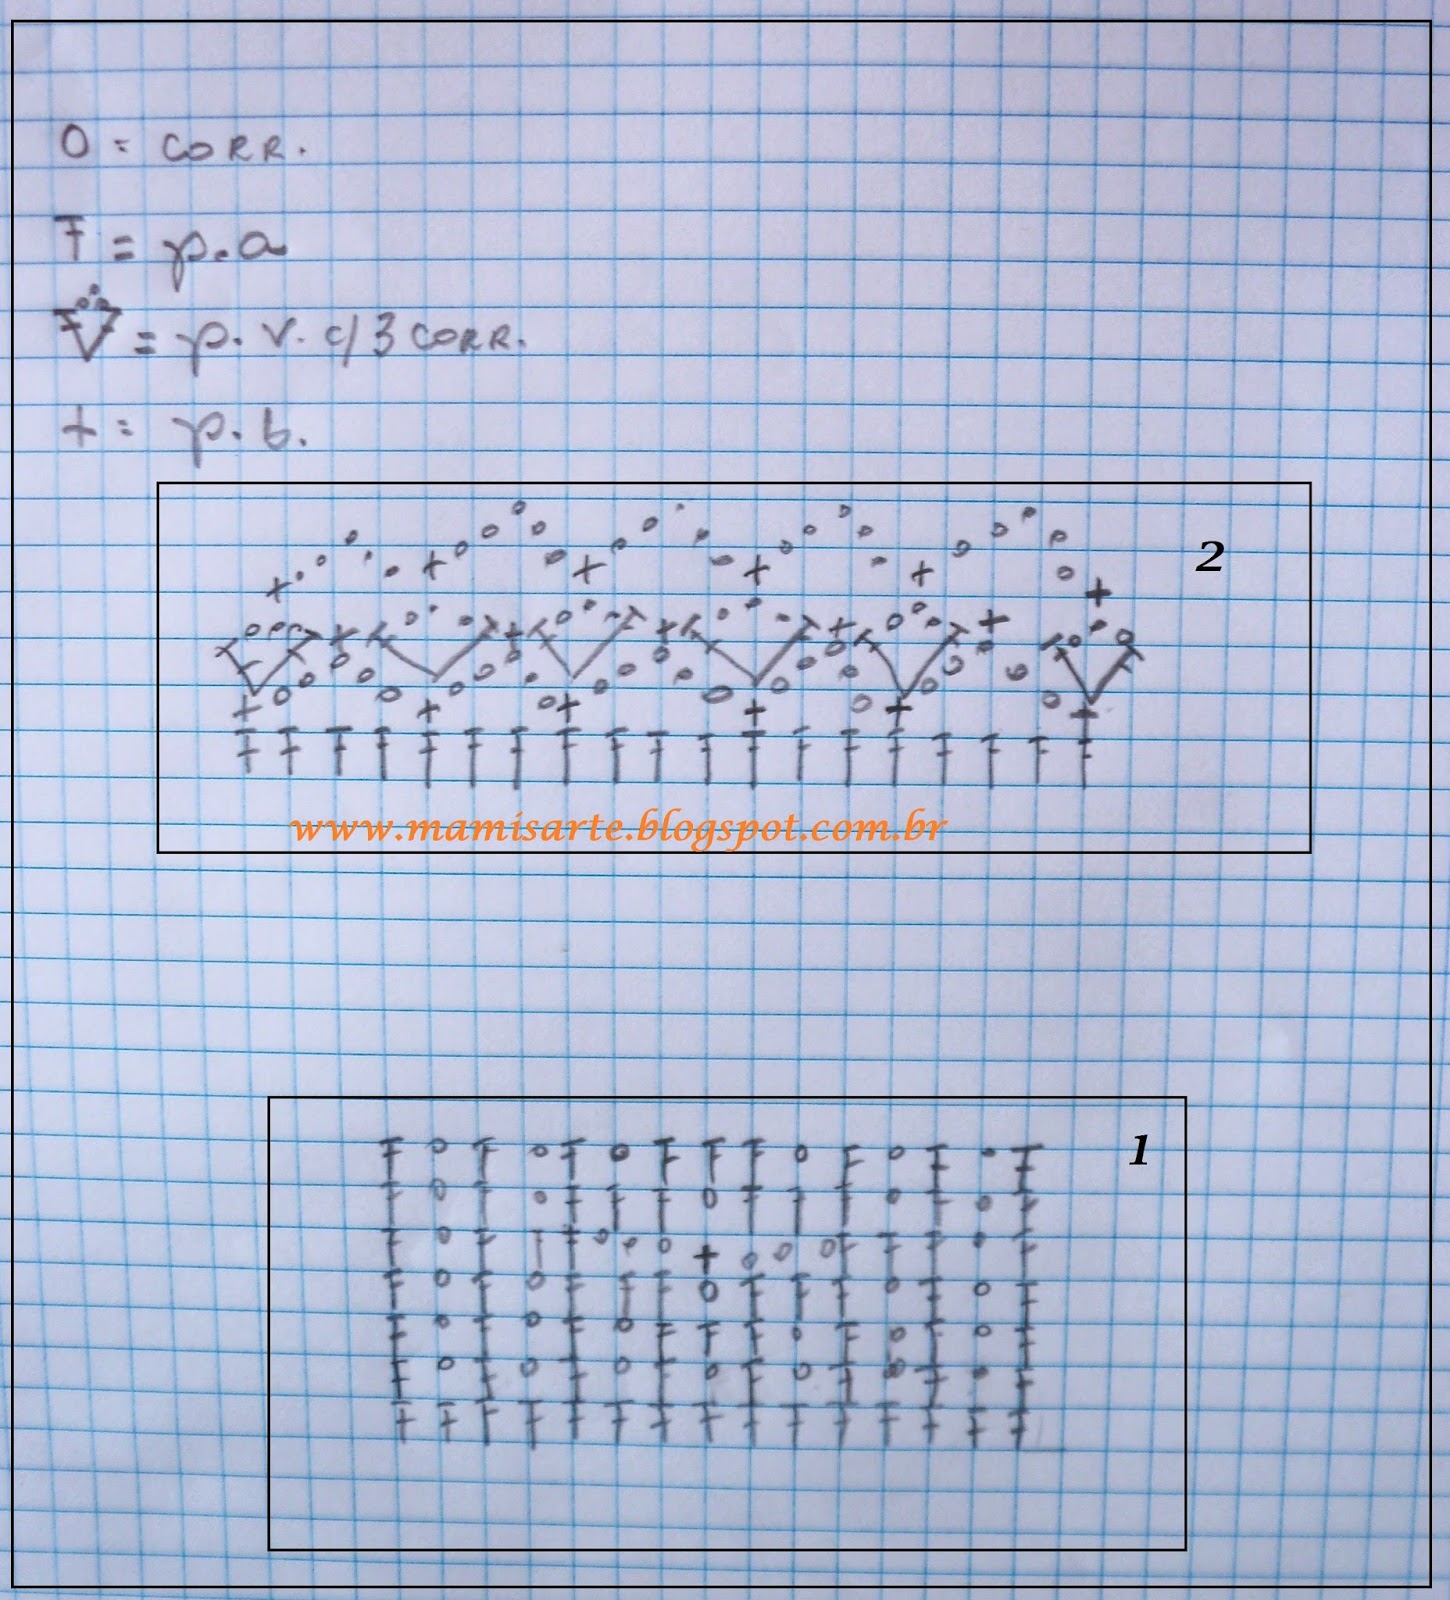 O = CORR.
= p.a
= p. v. c/3 CORR.
+ = p. b.
2
www.mamisarte.blogspot.com.br
1